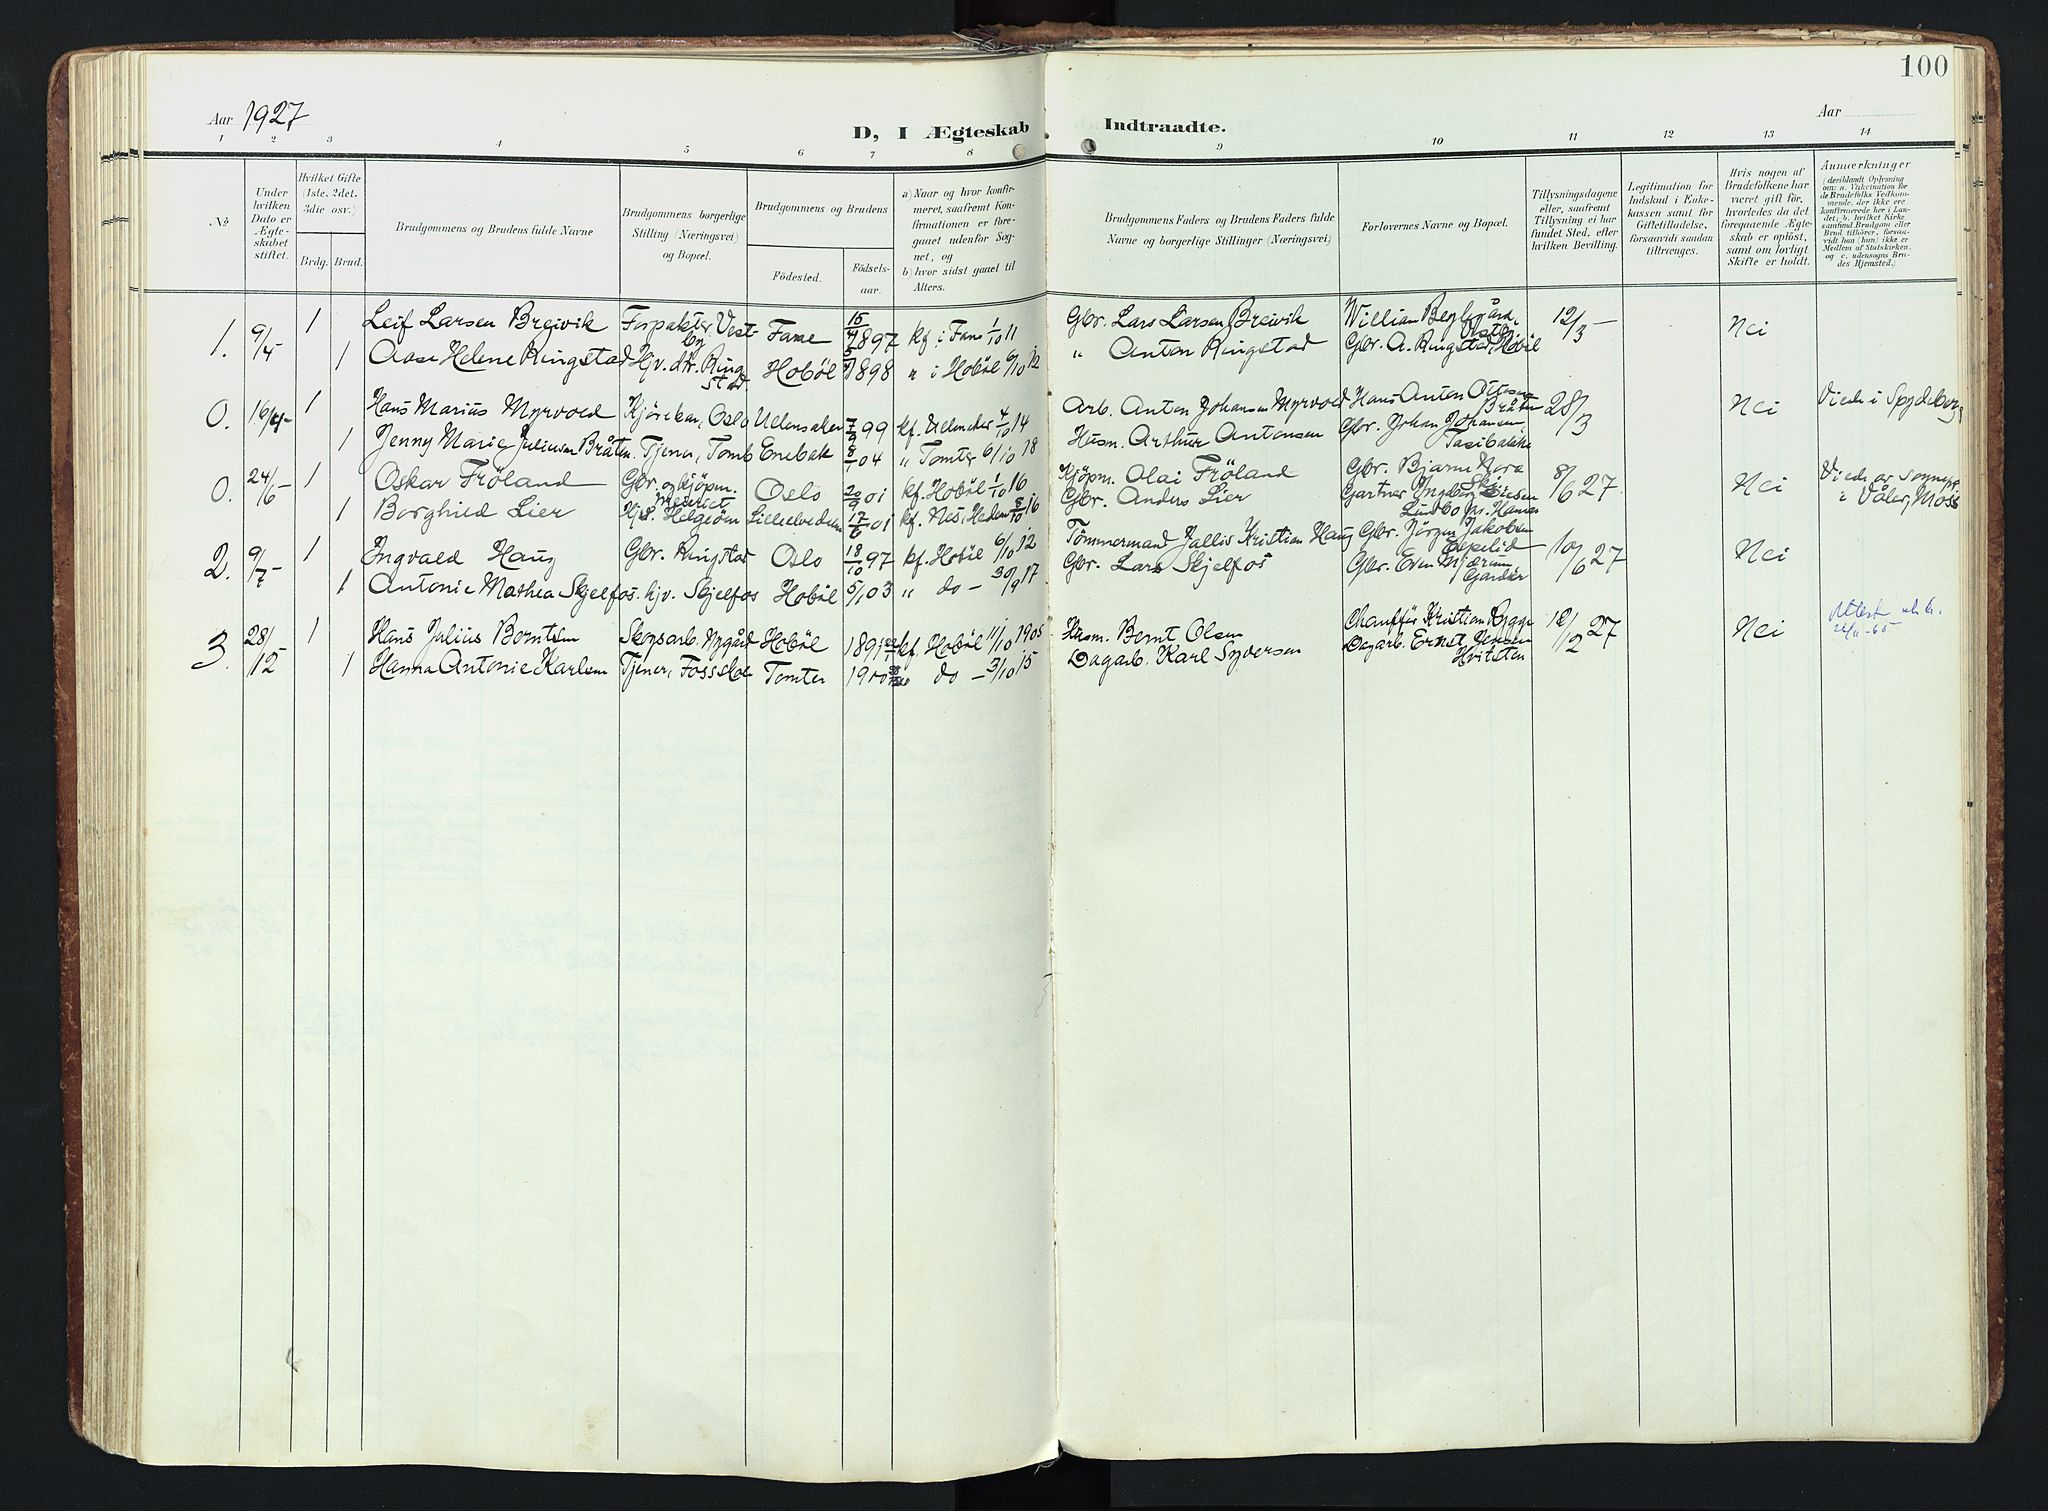 100
Aar 1927
D, I Ægteskab Indtraadte.
Aar
1 2 3 4 5 6 7 8 9 10 11 12 13 14
№
Under hvilken Dato er Ægteskabet stiftet.
Hvilket Gifte (1ste, 2det, 3die osv.)
Brdg. Brud.
Brudgommens og Brudens fulde Navne
Brudgommens borgerlige Stilling (Næringsvei) og Bopæl.
Brudgommens og Brudens
Födested.
Födselsaar.
a) Naar og hvor konfirmeret, saafremt Konfirmationen er foregaaet udenfor Sognet, og
b) hvor sidst gaaet til Alters.
Brudgommens Faders og Brudens Faders fulde Navne og borgerlige Stillinger (Næringsvei)
Forlovernes Navne og Bopæl.
Tillysningsdagene eller, saafremt Tillysning ei har fundet Sted, efter hvilken Bevilling.
Legitimation for Indskud i Enkekassen samt for Giftetilladelse, forsaavidt saadan tiltrænges.
Hvis nogen af Brudefolkene har været gift för, hvorledes da det foregaaende Ægteskab er oplöst, samt om lovligt Skifte er holdt.
Anmærkninger (deriblandt Oplysning om: a. Vakcination for de Brudefolks Vedkommende, der ikke ere konfirmerede her i Landet; b. hvilket Kirkesamfund Brudgom eller Brud tilhörer, forsaavidt han (hun) ikke er Medlem af Statskirken. og c. udensogns Brudes Hjemsted.)
1. 9/4 - 1 Leif Larsen Breivik Forpakter, Vestby Fane 15/4 1897 kf. i Fane 1/10 11 Gbr. Lars Larsen Breivik William 12/3 - Nei
1 Aase Helene Ringstad Hjv. dtr. Ringstad Hobøl 1898 " i Hobøl 6/10 12 " Anton Ringstad Gbr. A. Ringstad, Hobøl
0. 16/4 - 1 Hans Marius Myrvold Kjørekar, Oslo 7/7 99 kf. 4/10 14 Arb. Anton Johansen Myrvold Hans Anton Bråten 28/3 Nei Viede i Spydeberg
1 Jenny Marie Juliussen Bråten. Tjener, Tomb Enebak 04 " Tomter 6/10 18 Husm. Arthur Antonsen Gbr. Johan Johansen,
0. 24/6 - 1 Oskar Frøland Gbr. og kjøpm. Oslo 20/9 01 kf. Hobøl 1/10 16 Kjøpm. Olai Frøland Gbr. Bjarne Nora Ski 8/6 27 Nei Viede av sognepr.
1 Borghild Lier Helgeøen 17/6 01 kf. Nes, Hedem. 8/10 16 Gbr. Anders Lier Gartner Lundbo pr. Hamar " Våler, Moss
2. 9/7 - 1 Ingvald Haug Gbr. Ringstad Oslo 18/10 97 kf. Hobøl 6/10 12 Tømmermand Jallis Kristian Haug Gbr. Jørgen Jakobsen Espelid 10/6 27 Nei
1 Antonie Mathea Skjelfos. hjv. Skjelfos Hobøl 5/1 03 " do - 30/9 17 Gbr. Lars Skjelfos Gbr. Even Mjærum Garder
3. 28/12 1 Hans Julius Berntsen Skogsarb. Nygård Hobøl 1891 kf. Hobøl 11/10 1905 Husm. Bernt Olsen Chauffør Kristian Rygge 12/12 27 Nei Attest utst.
1 Hanna Antonie Karlsen Tjener, Fosshoe Tomter 1900 " do - 3/10 15 Dagarb. Karl Sydersen Dagarb. Ernst Jensen Hvitsten